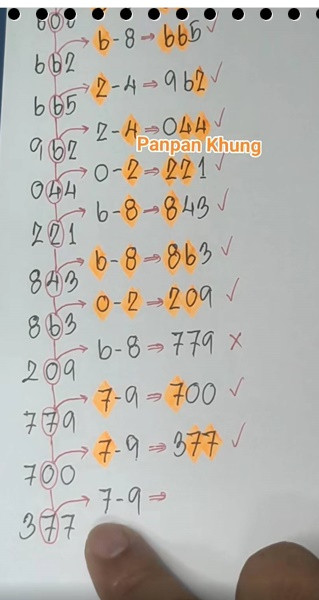 600
6-8⇒665✓
662
2-4⇒962✓
665
2-4⇒044✓
962
Panpan Khung
0-2⇒221✓
044
6-8⇒843✓
221
6-8⇒863✓
843
0-2⇒209✓
863
6-8⇒779×
209
7-9⇒700✓
779
7-9⇒377✓
700
7-9⇒
377